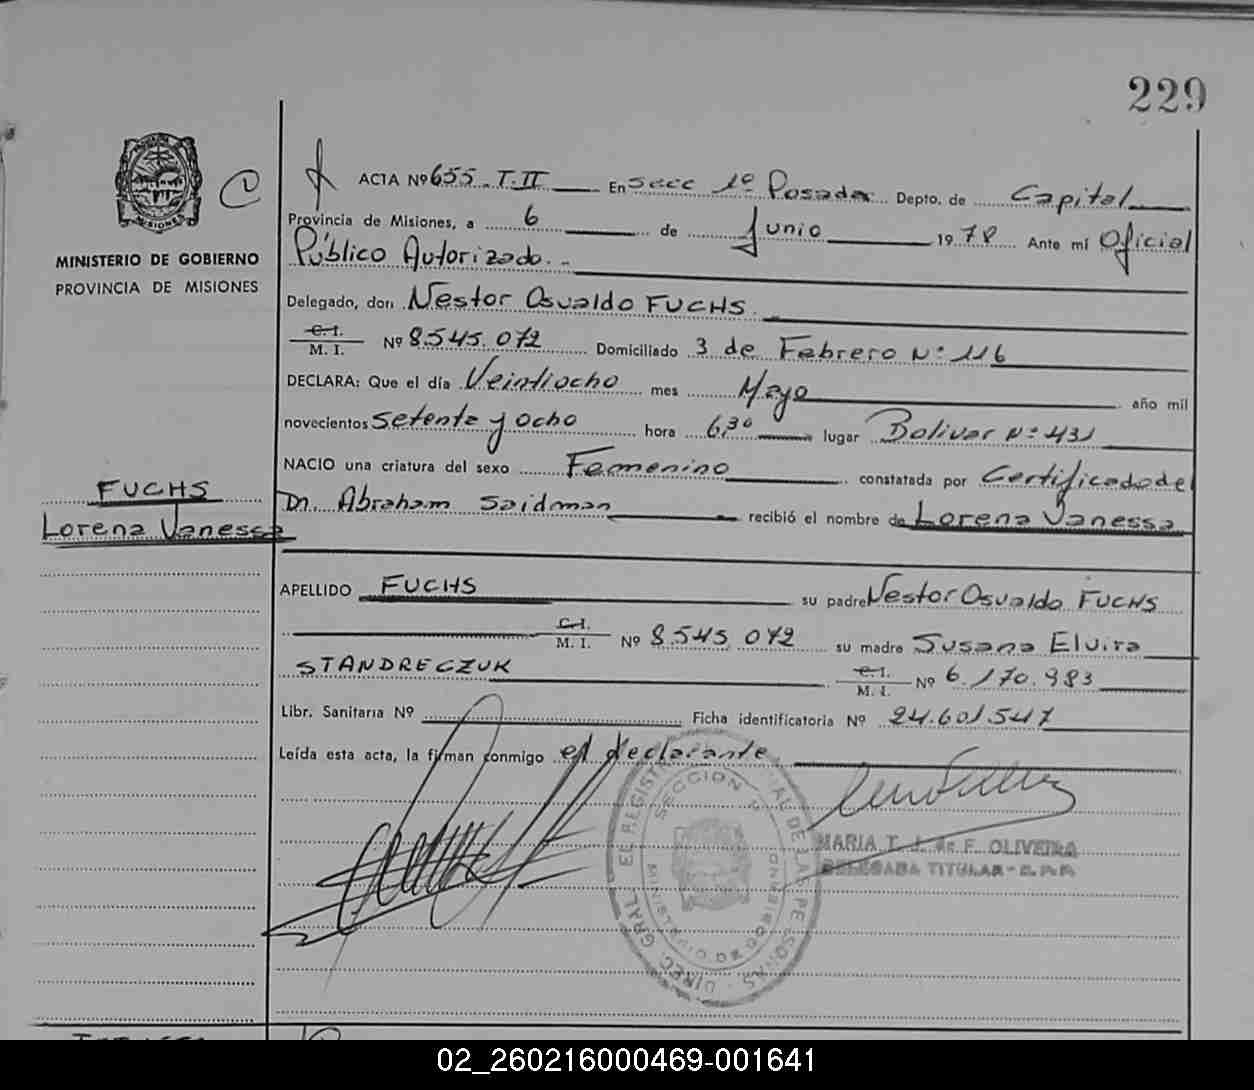 229
ACTA Nº 655. T. II En Secc 1º Posadas Depto. de Capital
Provincia de Misiones, a 6 de Junio 1978 Ante mí Oficial
Público Autorizado.-
MINISTERIO DE GOBIERNO
PROVINCIA DE MISIONES
Delegado, don Nestor Osvaldo FUCHS.
C. I.
M. I. Nº 8.545.072 Domiciliado 3 de Febrero Nº 116
DECLARA: Que el día Veintiocho mes Mayo año mil
novecientos Setenta y ocho hora 6,30 lugar Bolivar Nº 431
NACIO una criatura del sexo Femenino constatada por Certificado del
FUCHS
Lorena Vanessa
Dr. Abraham Saidman recibió el nombre de Lorena Vanessa
APELLIDO FUCHS su padre Nestor Osvaldo FUCHS
C. I.
M. I. Nº 8.545.072 su madre Susana Elvira
STANDRECZUK C. I.
M. I. Nº 6.170.983
Libr. Sanitaria Nº Ficha identificatoria Nº 24.601.547
Leída esta acta, la firman conmigo el declarante
SECCION
MARIA T. J. de F. OLIVEIRA
DELEGADA TITULAR
02_260216000469-001641